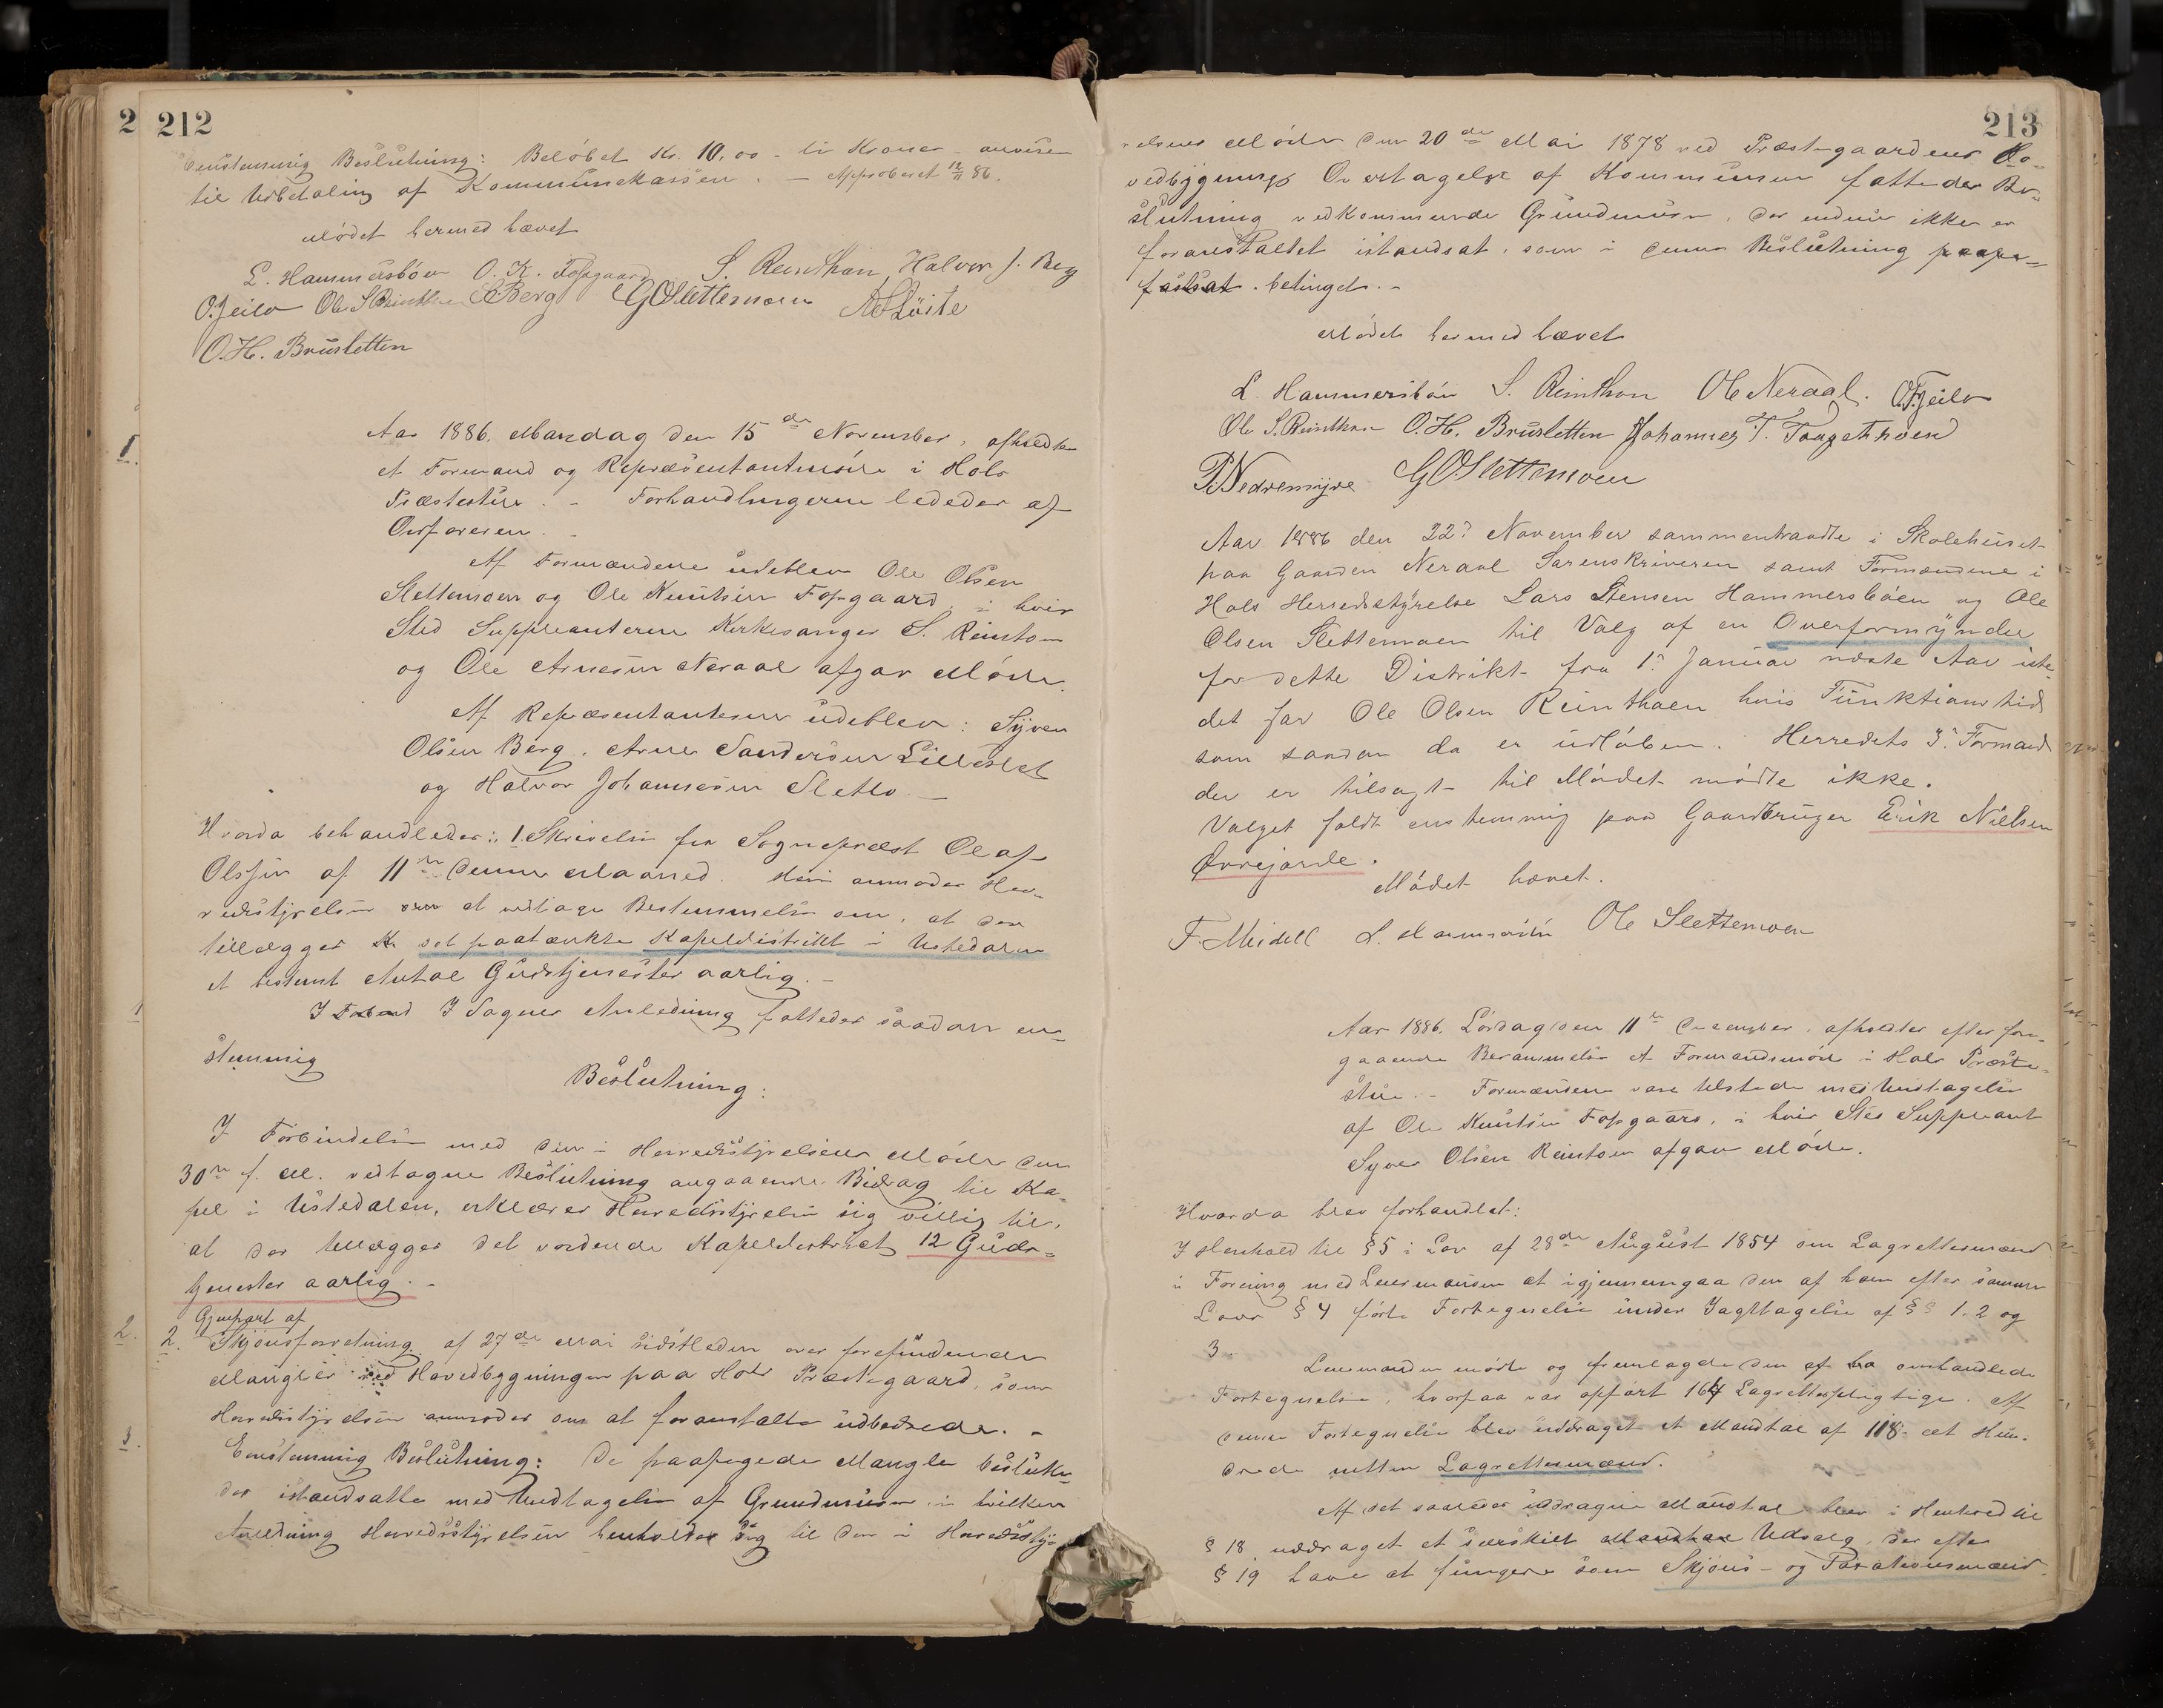 2 212
Eenstemmig Beslutning: Beløbet Kr. 10,00 - ti Kroner - anvises
til Udbetaling af Kommunekassen. - Approberet 12/11 86.
Mødet hermed hævet
L. Hammersbøen O. K. Fopgaard S. Reinthon Halvor J. Berg
O. Jeilo Ole S. Reinthon S Berg G O Slettemoen
O. H. Brusletten
1.
Aar 1886. Mandag den 15de November, afholdtes
et Formand og Repræsentantmøde i Hols
Præstestue. - Forhandlingerne lededes af
Ordføreren. -
Af Formændene udeblev Ole Olsen
Slettemoen og Ole Knutsen Fopgaard, i hvis
Sted Suppleanterne Kirkesanger S. Reinton
og Ole Arnesen Neraal afgav Møde.
Af Repræsentanterne udeblev: Syver
Olsen Berg, Arne Sandersen Lilleslet
og Halvor Johannesen Sletto -
Hvorda behandledes: 1. Skrivelse fra Sogneprest Olaf
Olssen af 11te denne Maaned. Heri anmodes Her-
redsstyrelsen om at vedtage Bestemmelse om, at der
tillægges det paatænkte Kapeldistrikt i Ustedalen
et bestemt Antal Gudstjenester aarlig. -
1
I Sagens Anledning fattedes saadan en-
stemmig
Beslutning:
I Forbindelse med den i Herredsstyrelsens Møde den
30te f. M. vedtagne Beslutning angaaende Bidrag til Ka-
pel i Ustedalen, erklærer Herredsstyrelsen sig villig til,
at der tillægges det vordende Kapeldistrict 12 Guds-
tjenester aarlig. -
Gjenpart af
2. 2. Skjønsforretning af 27de Mai sidstleden over forefindende
Mangler ved Hovedbygningen paa Hols Præstegaard, som
Herredsstyrelsen anmodes om at foranstalte udbedrede. -
3.
Eenstemmig Beslutning: De paapegede Mangler beslutte-
des istandsatte med Undtagelse af Grundmuren, i hvilken
Anledning Herredsstyrelsen henholder sig til den i Herredssty-
213
relsens Møde den 20de Mai 1878 ved Præstegaardens Ho-
vedbygnings Overtagelse af Kommunen fattede Be-
slutning vedkommende Grundmuren, der endnu ikke er
foranstaltet istandsat, som i denne Beslutning
betinget. -
Mødet hermed hævet
L. Hammersbøen S. Reinthon Ole Neraal. O. Jeilo
Ole S. Reinthon O. H. Brusletten Johannes T. Taugethoen
P Nedremyre G O Slettemoen
Aar 1886 den 22d November sammentraadte i Skolehuset
paa Gaarden Neraal Sorenskriveren samt Formændene i
Hols Herredsstyrelse Lars Stensen Hammersbøen og Ole
Olsen Slettemoen til Valg af en Overformynder
for dette Distrikt fra 1ste Januar næste Aar iste-
det for Ole Olsen Reinthoen hvis Funktionstid
som saadan da er udløben. Herredets 3die Formand
der er tilsagt til Mødet mødte ikke.
Valget faldt enstemmig paa Gaardbruger Erik Nielsen
Øvrejorde.
Mødet hævet.
F. Meidell L. Hammersbøen Ole Slettemoen
Aar 1886, Lørdag den 11te December, afholdtes efter fore-
gaaende Berammelse et Formandsmøde i Hols Præste-
stue. - Formændene vare tilstede med Undtagelse
af Ole Knutsen Fopgaard, i hvis Sted Suppleant
Syver Olsen Reinton afgav Møde.
Hvorda blev forhandlet:
I Henhold til § 5 i Lov af 28de August 1854 om Lagrettesmænd
i Forening med Lensmanden at igjennemgaa den af ham efter samme
Lovs § 4 førte Fortegnelse under Iagttagelse af §§ 1. 2 og
3.
Lensmanden mødte og fremlagde den omhandlede
Fortegnelse, hvorpaa var opført 164 Lagrettespligtige. Af
denne Fortegnelse blev uddraget et Mandtal af 118. et Hun-
drede atten Lagrettesmænd.
Af det saaledes uddragne Mandtal blev i Henhold til
§ 18 uddraget et særskilt Mandtal Udvalg, der efter
§ 19 have at fungere som Skjøns- og Taxationsmænd.